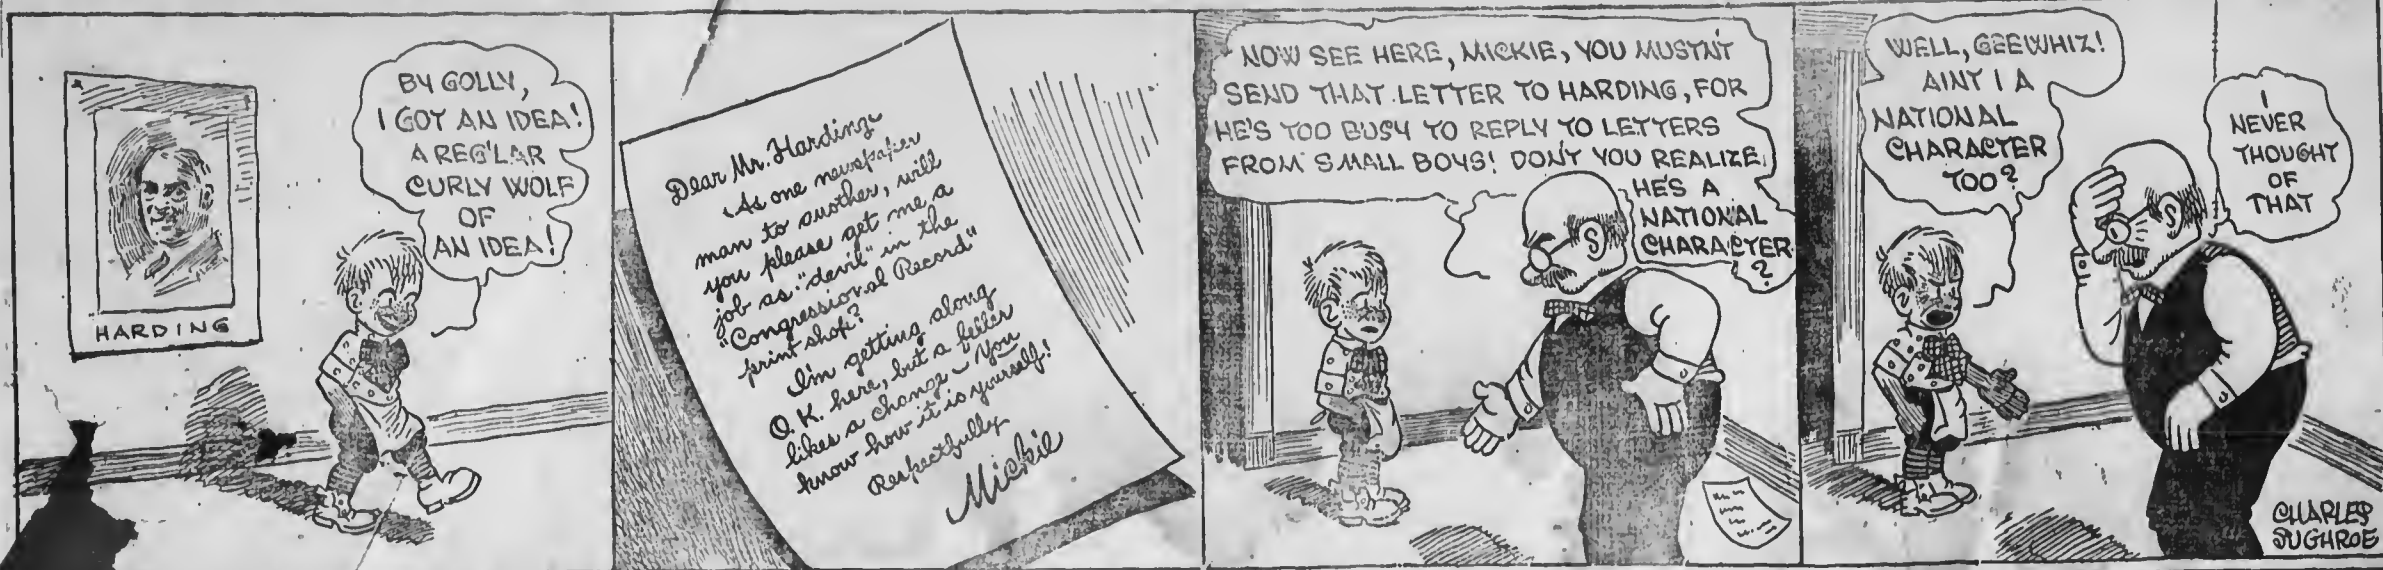 HARDING
BY GOLLY,
I GOT AN IDEA!
A REG'LAR
CURLY WOLF
OF
AN IDEA!
Dear Mr. Harding~
As one newspaper
man to another, will
you please get me a
job as "devil" in the
"Congressional Record"
print shop?
I'm getting along
O.K. here, but a feller
likes a change ~ You
know how it is yourself!
Respectfully
Mickie
NOW SEE HERE, MICKIE, YOU MUSTN'T
SEND THAT LETTER TO HARDING, FOR
HE'S TOO BUSY TO REPLY TO LETTERS
FROM SMALL BOYS! DON'T YOU REALIZE
HE'S A
NATIONAL
CHARACTER
?
WELL, GEEWHIZ!
AINT I A
NATIONAL
CHARACTER
TOO?
I
NEVER
THOUGHT
OF
THAT
CHARLES
SUGHROE